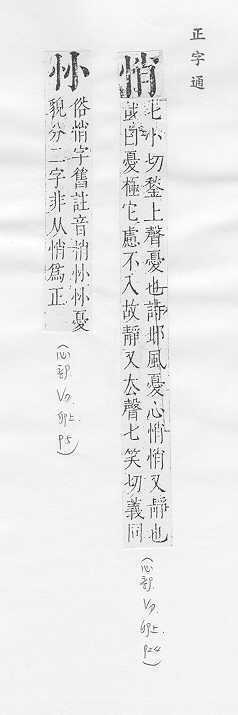 正字通
悄
七小切鍫上聲憂也詩邶風憂心悄悄又靜也
或曰憂極它慮不入故靜又去聲七笑切義同
(心部.
卯上.
P24)
忄小
俗悄字舊註音悄忄小忄小憂
貌分二字非从悄爲正
(心部.
卯上.
P5)